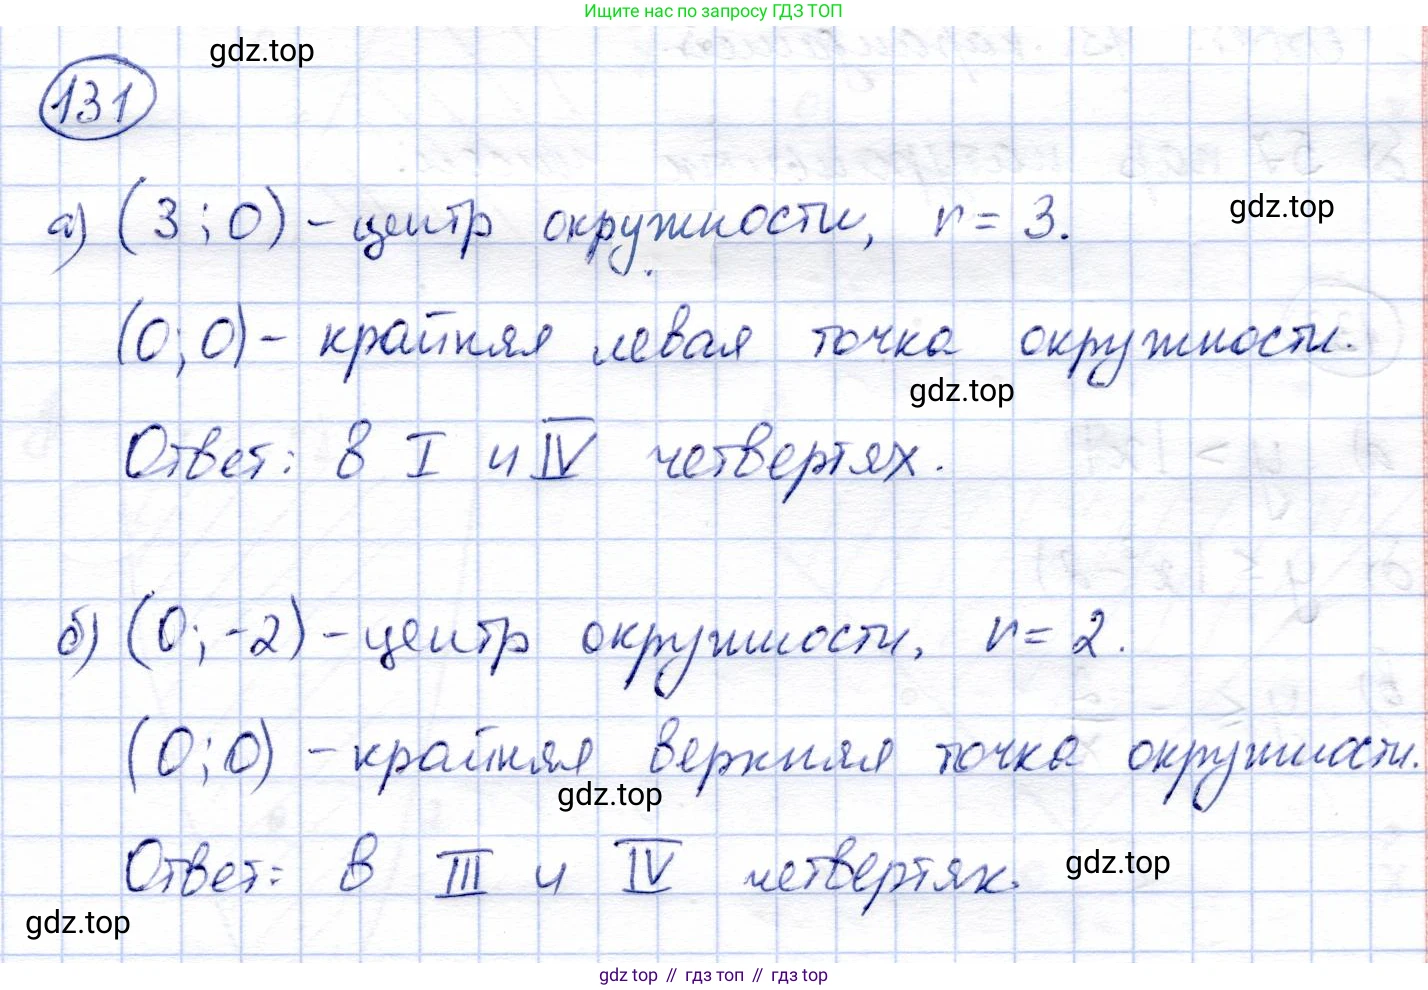 Ищите нас по запросу ГДЗ ТОП
gdz.top
131
а) (3; 0) - центр окружности, r = 3.
gdz.top
(0; 0) - крайняя левая точка окружности.
gdz.top
Ответ: в I и IV четвертях.
б) (0; -2) - центр окружности, r = 2.
(0; 0) - крайняя верхняя точка окружности.
gdz.top
Ответ: в III и IV четвертях.
gdz.top
gdz.top
gdz top // гдз топ // гдз top